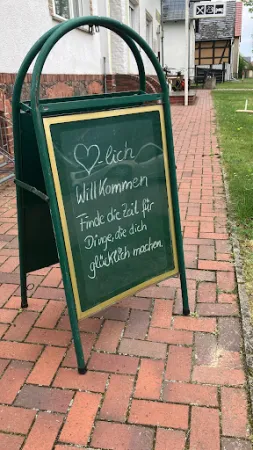 ♡-lich
Willkommen
Finde die Zeit für
Dinge, die dich
glücklich machen.